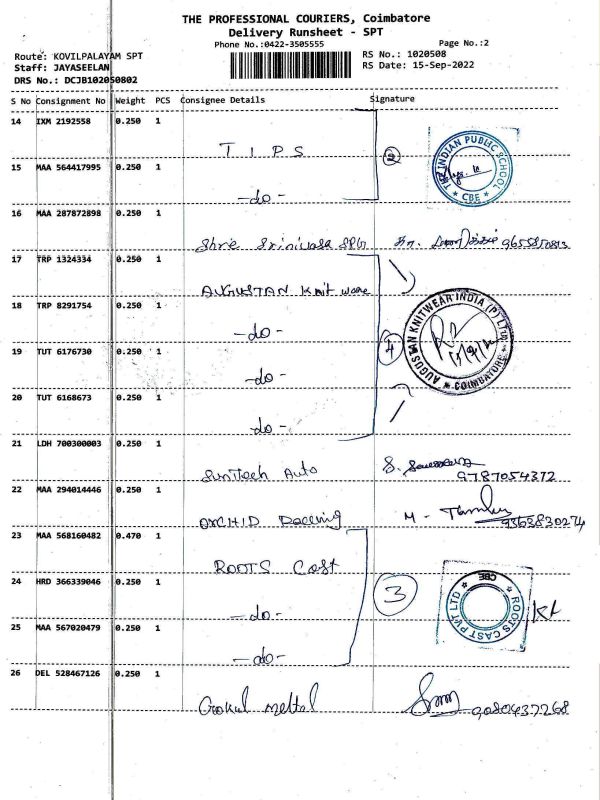 THE PROFESSIONAL COURIERS, Coimbatore
Delivery Runsheet - SPT
Phone No.:0422-3505555
Page No.:2
Route: KOVILPALAYAM SPT
RS No.: 1020508
Staff: JAYASEELAN
RS Date: 15-Sep-2022
DRS No.: DCJB102050802
S No Consignment No Weight PCS Consignee Details Signature
14 IXM 2192558 0.250 1
TIPS
2
THE INDIAN PUBLIC SCHOOL
* CBE *
15 MAA 564417995 0.250 1
-do-
16 MAA 287872898 0.250 1
Shree Srinivasa SPG
17 TRP 1324334 0.250 1
AUGUSTAN Knit ware
18 TRP 8291754 0.250 1
-do-
4
AUGUSTAN KNITWEAR INDIA (P) LTD
* COIMBATORE *
19 TUT 6176730 0.250 1
-do-
20 TUT 6168673 0.250 1
-do-
21 LDH 700300003 0.250 1
Sunitech Auto
9787054372
22 MAA 294014446 0.250 1
ORCHID
M -
9363830274
23 MAA 568160482 0.470 1
ROOTS Cast
24 HRD 366339046 0.250 1
-do-
3
ROOTS CAST PVT LTD
* CBE *
25 MAA 567020479 0.250 1
-do-
26 DEL 528467126 0.250 1
Gokul Mettal
9080437268